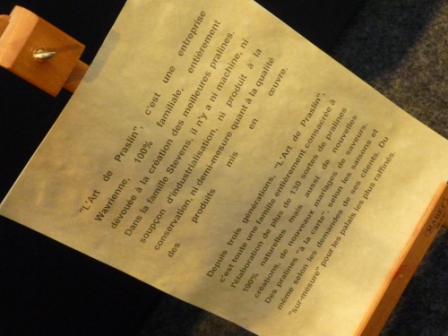 "L'Art de Praslin", c'est une entreprise
Wavrienne, 100% familiale, entièrement
dévouée à la création des meilleures pralines.
Dans la famille Stevens, il n'y a ni machine, ni
soupçon d'industrialisation, ni produit à la
conservation, ni demi-mesure quant à la qualité
des produits mis en œuvre.
Depuis trois générations, "L'Art de Praslin",
c'est toute une famille entièrement consacrée à
l'élaboration de plus de 130 sortes de pralines
100% naturelles mais aussi de nouvelles
créations, de nouveaux mariages de saveurs.
Des pralines "à la carte", selon les saisons et
même selon les demandes de ses clients. Du
"sur-mesure" pour les palais les plus raffinés.